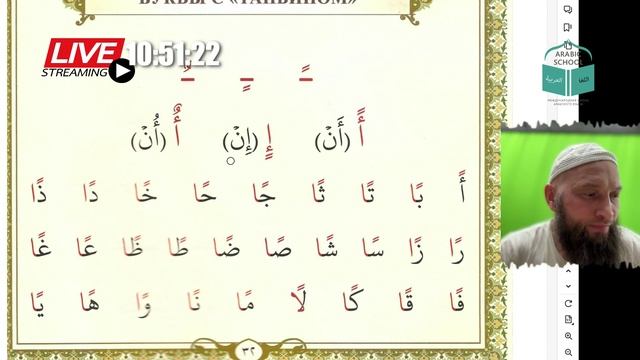 БУКВЫ С «ТАНВИНОМ»
LIVE 10:51:22
STREAMING
ARABIC
SCHOOL
اللغة العربية
ـً ـٍ ـٌ
أً (أَنْ) إٍ (إِنْ) أٌ (أُنْ)
أً بًا تًا ثًا جًا حًا خًا دًا ذًا
رًا زًا سًا شًا صًا ضًا طًا ظًا عًا غًا
فًا قًا كًا لًا مًا نًا وًا هًا يًا
٣٢